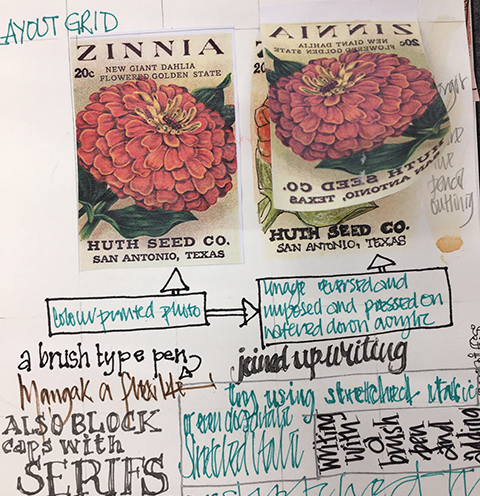 LAYOUT GRID
ZINNIA
20c
NEW GIANT DAHLIA
FLOWERED GOLDEN STATE
HUTH SEED CO.
SAN ANTONIO, TEXAS
ZINNIA
NEW GIANT DAHLIA
FLOWERED GOLDEN STATE
20c
20
HUTH SEED CO.
SAN ANTONIO, TEXAS
HUTH SEED CO.
SAN ANTONIO, TEXAS
cutting
Colour printed photo
Image reversed and
imposed and pressed on
watered down acrylic
a brush type pen
joined up writing
Mangaka a flexible
try using stretched italic
or even
Stretched Italic
ALSO BLOCK
caps with
SERIFS
writing
with
a
brush
pen
and
adding